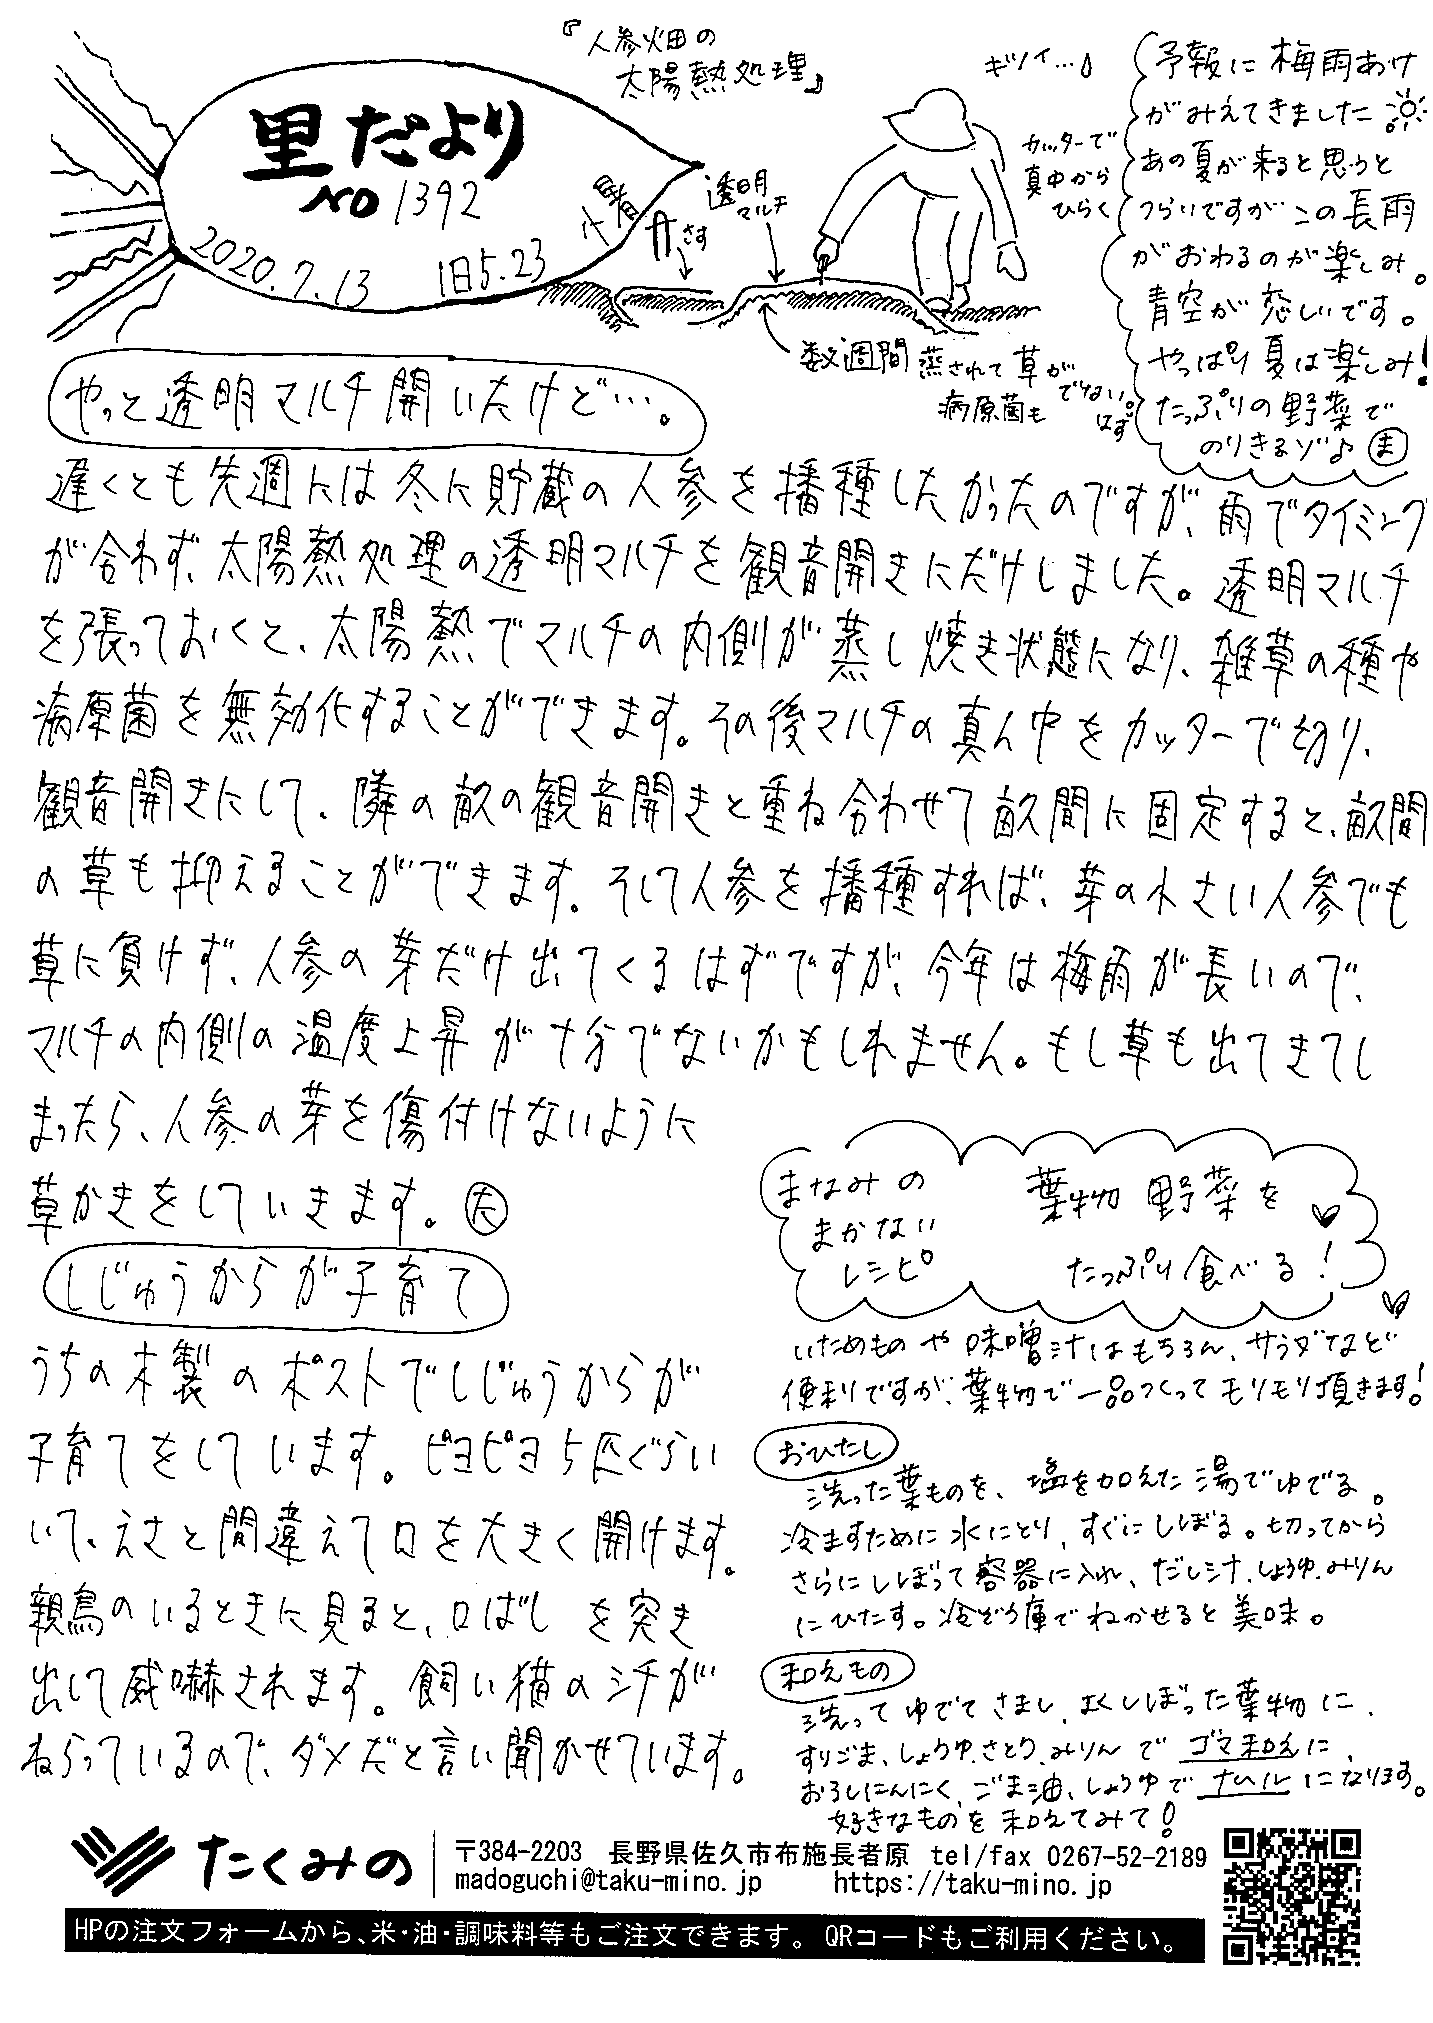 里だより
NO 1392
2020.7.13
旧5.23
小暑
『人参畑の
太陽熱処理』
キツイ…
カッターで
真中から
ひらく
透明
マルチ
さす
数週間
蒸されて草が
病原菌も
でてない
はず。
予報に梅雨あけ
がみえてきました
あの夏が来ると思うと
つらいですがこの長雨
がおわるのが楽しみ。
青空が恋しいです。
やっぱり夏は楽しみ!
たっぷりの野菜で
のりきるゾ♪ ま
やっと透明マルチ開いたけど…。
遅くとも先週には冬に貯蔵の人参を播種したかったのですが、雨でタイミング
が合わず、太陽熱処理の透明マルチを観音開きにだけしました。透明マルチ
を張っておくと、太陽熱でマルチの内側が蒸し焼き状態になり、雑草の種や
病原菌を無効化することができます。その後マルチの真ん中をカッターで切り、
観音開きにして、隣の畝の観音開きと重ね合わせて畝間に固定すると、畝間
の草も抑えることができます。そして人参を播種すれば、芽の小さい人参でも
草に負けず、人参の芽だけ出てくるはずですが、今年は梅雨が長いので、
マルチの内側の温度上昇が十分でないかもしれません。もし草も出てきてし
まったら、人参の芽を傷付けないように
草かきをしていきます。
しじゅうからが子育て
うちの木製のポストでしじゅうからが
子育てをしています。ピヨピヨ5匹ぐらい
いて、えさと間違えて口を大きく開けます。
親鳥のいるときに見ると、口ばしを突き
出して威嚇されます。飼い猫のミチが
ねらっているので、ダメだと言い聞かせています。
まなみの
まかない
レシピ
葉物野菜を
たっぷり食べる!
いためものや味噌汁はもちろん、サラダなど
便利ですが、葉物で一品つくってモリモリ頂きます!
おひたし
洗った葉ものを、塩を加えた湯でゆでる。
冷ますために水にとり、すぐにしぼる。切ってから
さらにしぼって容器に入れ、だし汁、しょうゆ、みりん
にひたす。冷ぞう庫でねかせると美味。
和えもの
洗ってゆでてさまし、よくしぼった葉物に、
すりごま、しょうゆ、さとう、みりんでゴマ和えに、
おろしにんにく、ごま油、しょうゆでナムルになります。
好きなものを和えてみて!
たくみの
〒384-2203 長野県佐久市布施長者原 tel/fax 0267-52-2189
madoguchi@taku-mino.jp https://taku-mino.jp
HPの注文フォームから、米・油・調味料等もご注文できます。QRコードもご利用ください。